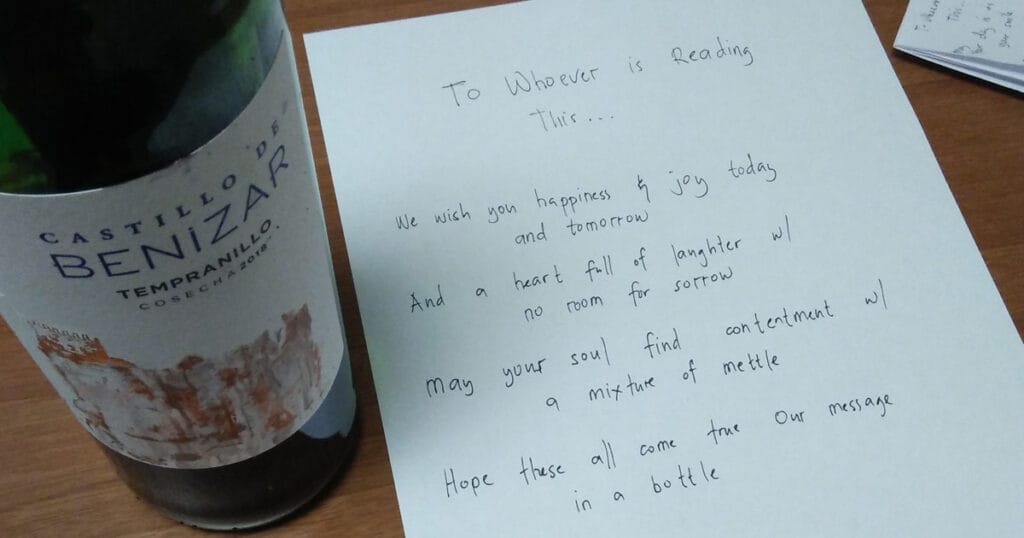 CASTILLO DE
BENIZAR
TEMPRANILLO
COSECHA 2018
To Whoever is Reading
This...
We wish you happiness & joy today
and tomorrow
And a heart full of laughter w/
no room for sorrow
may your soul find contentment w/
a mixture of mettle
Hope these all come true Our message
in a bottle
This...